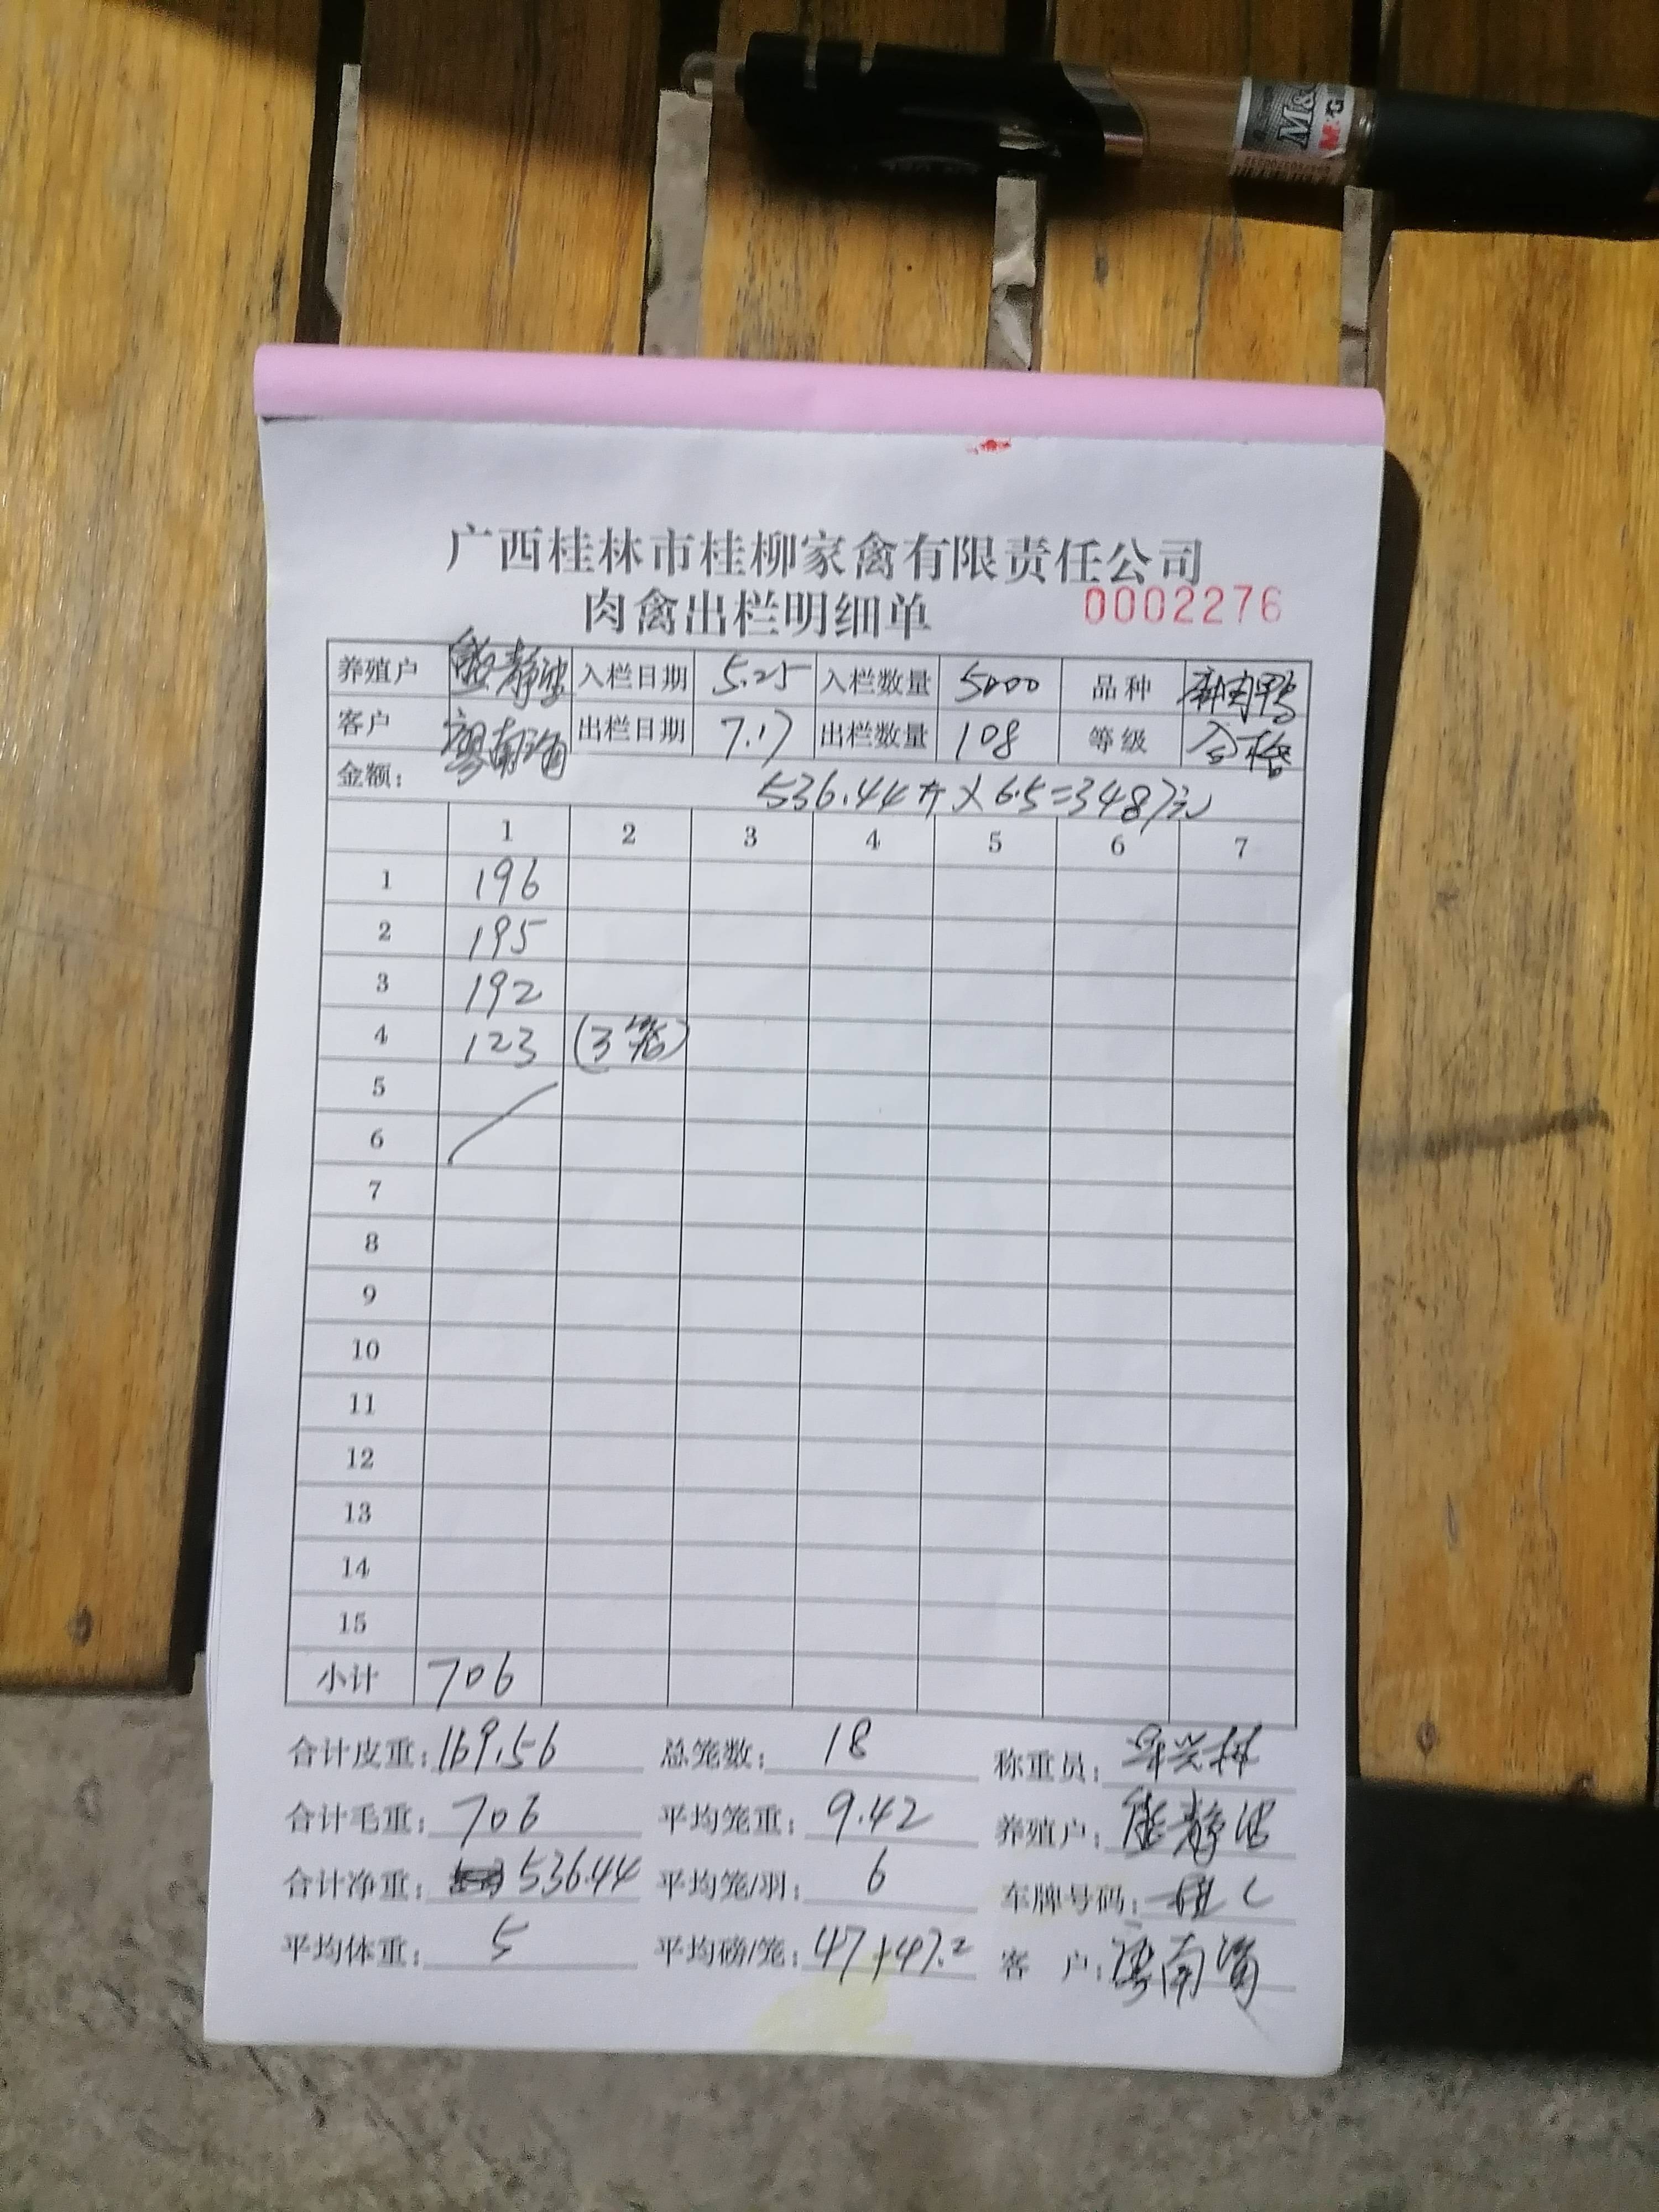 M&G
广西桂林市桂柳家禽有限责任公司
肉禽出栏明细单 0002276
养殖户 熊静波 入栏日期 5.25 入栏数量 5000 品种
客户 出栏日期 7.17 出栏数量 108 等级 合格
金额: 536.44斤×6.5=3487元
1 2 3 4 5 6 7
1 196
2 195
3 192
4 123 (3笼)
5
6
7
8
9
10
11
12
13
14
15
小计 706
合计皮重: 169.56 总笼数: 18 称重员:
合计毛重: 706 平均笼重: 9.42 养殖户: 熊静波
合计净重: 536.44 平均笼/羽: 6 车牌号码: 桂C
平均体重: 5 平均磅/笼: 47+47.2 客 户: